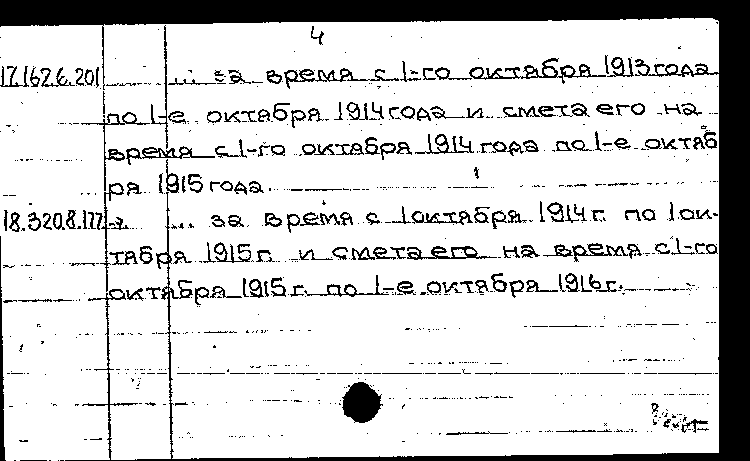 4
17.162.6.201 ... за время с 1-го октября 1913 года
по 1-е октября 1914 года и смета его на
время с 1-го октября 1914 года по 1-е октяб
ря 1915 года.
18.320.8.177 → ... за время с 1 октября 1914 г. по 1 ок-
тября 1915 г. и смета его на время с 1-го
октября 1915 г. по 1-е октября 1916 г.